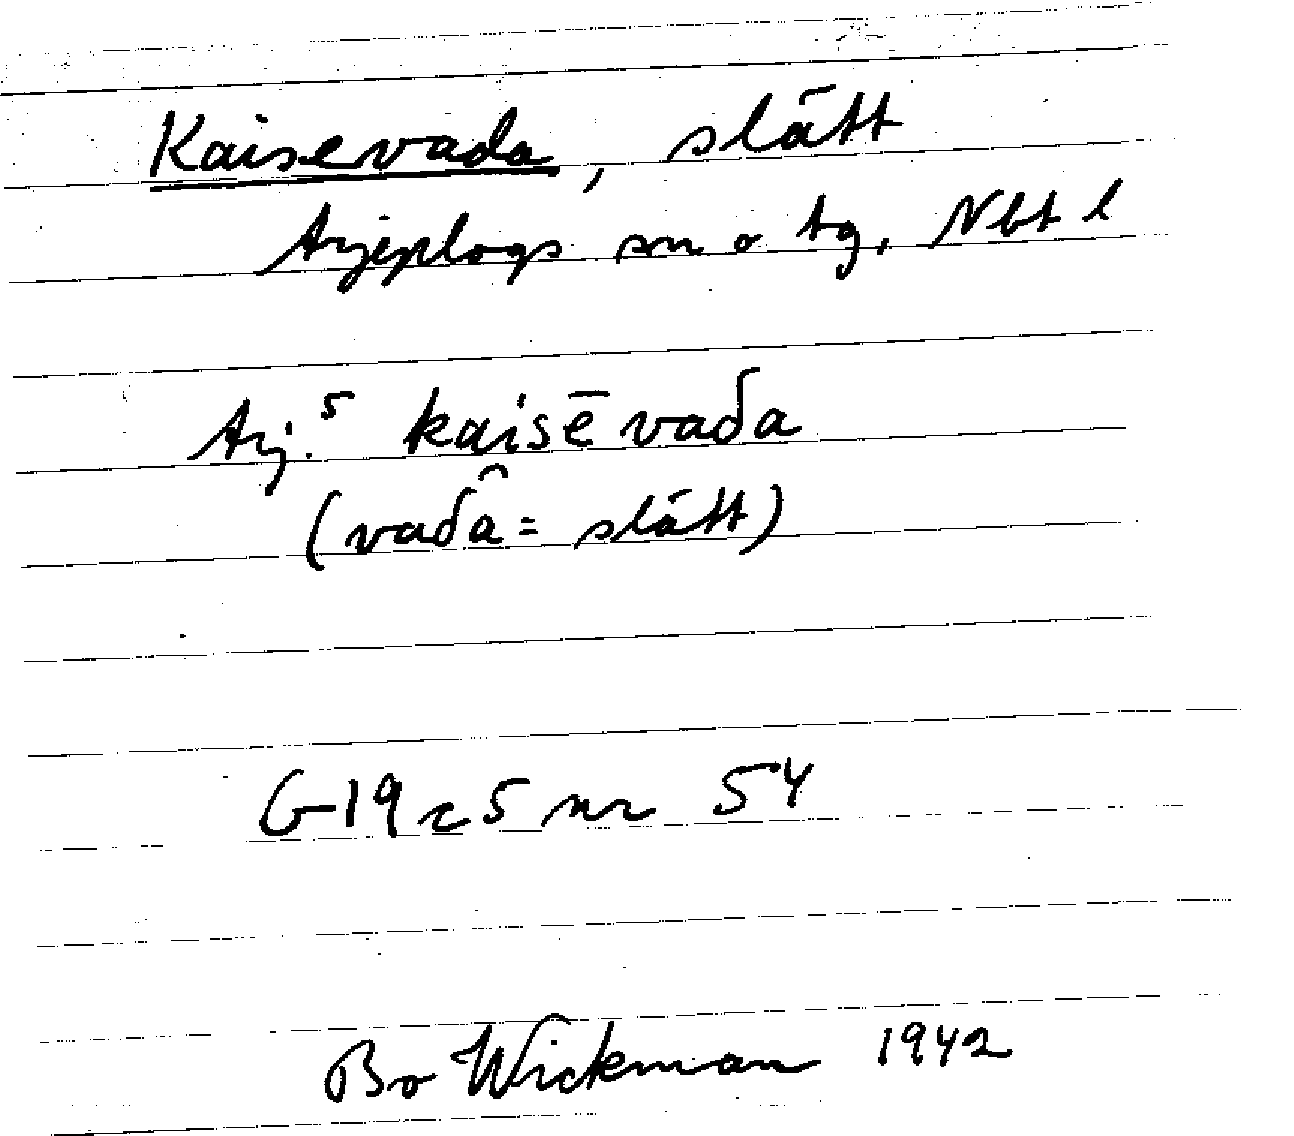 Kaisevada, slått
Arjeplogs sn o tg, Nbt l
Arj.⁵ kaisēvaδa
(vaδâ = slått)
G 19 c 5 nr 54
Bo Wickman 1942